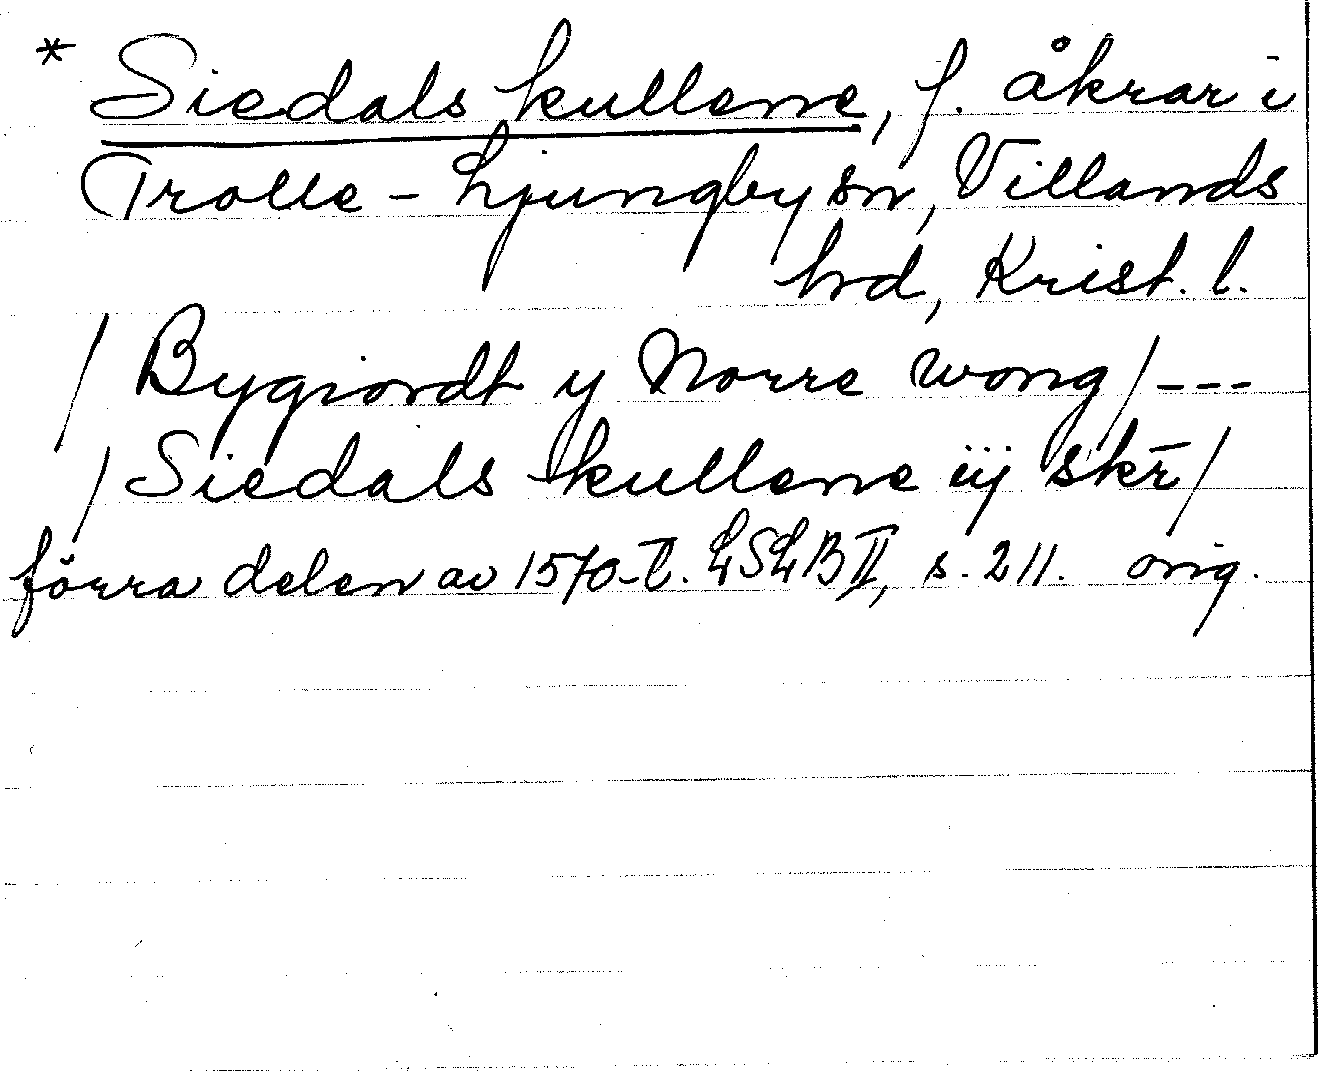 * Siedals kullene, f. åkrar i
Trolle-Ljungby sn, Villands
hrd, Krist. l.
/ Bygiordt y Norre wong / ---
/ Siedals kullene iij skr̄ /
förra delen av 1570-t. LSLB II, s. 211. orig.